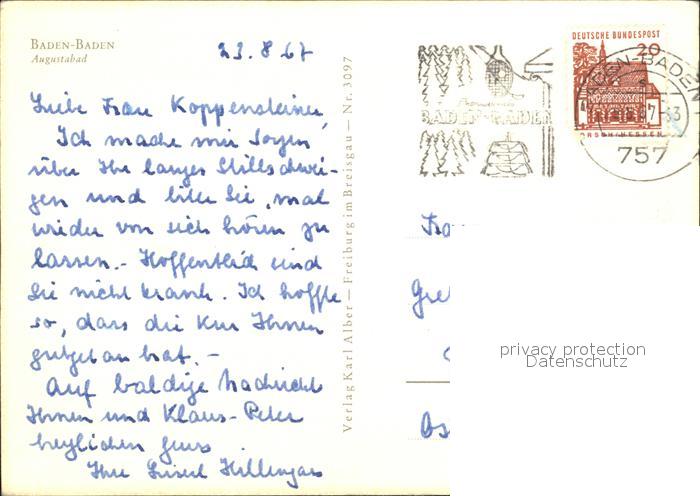 BADEN-BADEN
Augustabad
23.8.67
Liebe Frau Koppensteiner,
Ich mache mir Sorgen
über Ihr langes Stillschwei-
gen und bitte Sie, mal
wieder von sich hören zu
lassen.- Hoffentlich sind
Sie nicht krank. Ich hoffe
so, dass die Kur Ihnen
gutgetan hat. -
Auf baldige Nachricht
Ihnen und Klaus-Peter
herzlichen Gruss
Ihre Liesel
Verlag Karl Alber — Freiburg im Breisgau — Nr. 3097
BADEN-BADEN
DEUTSCHE BUNDESPOST
20
LORSCH/HESSEN
BADEN-BADEN
757
Fra
Gre
privacy protection
Datenschutz